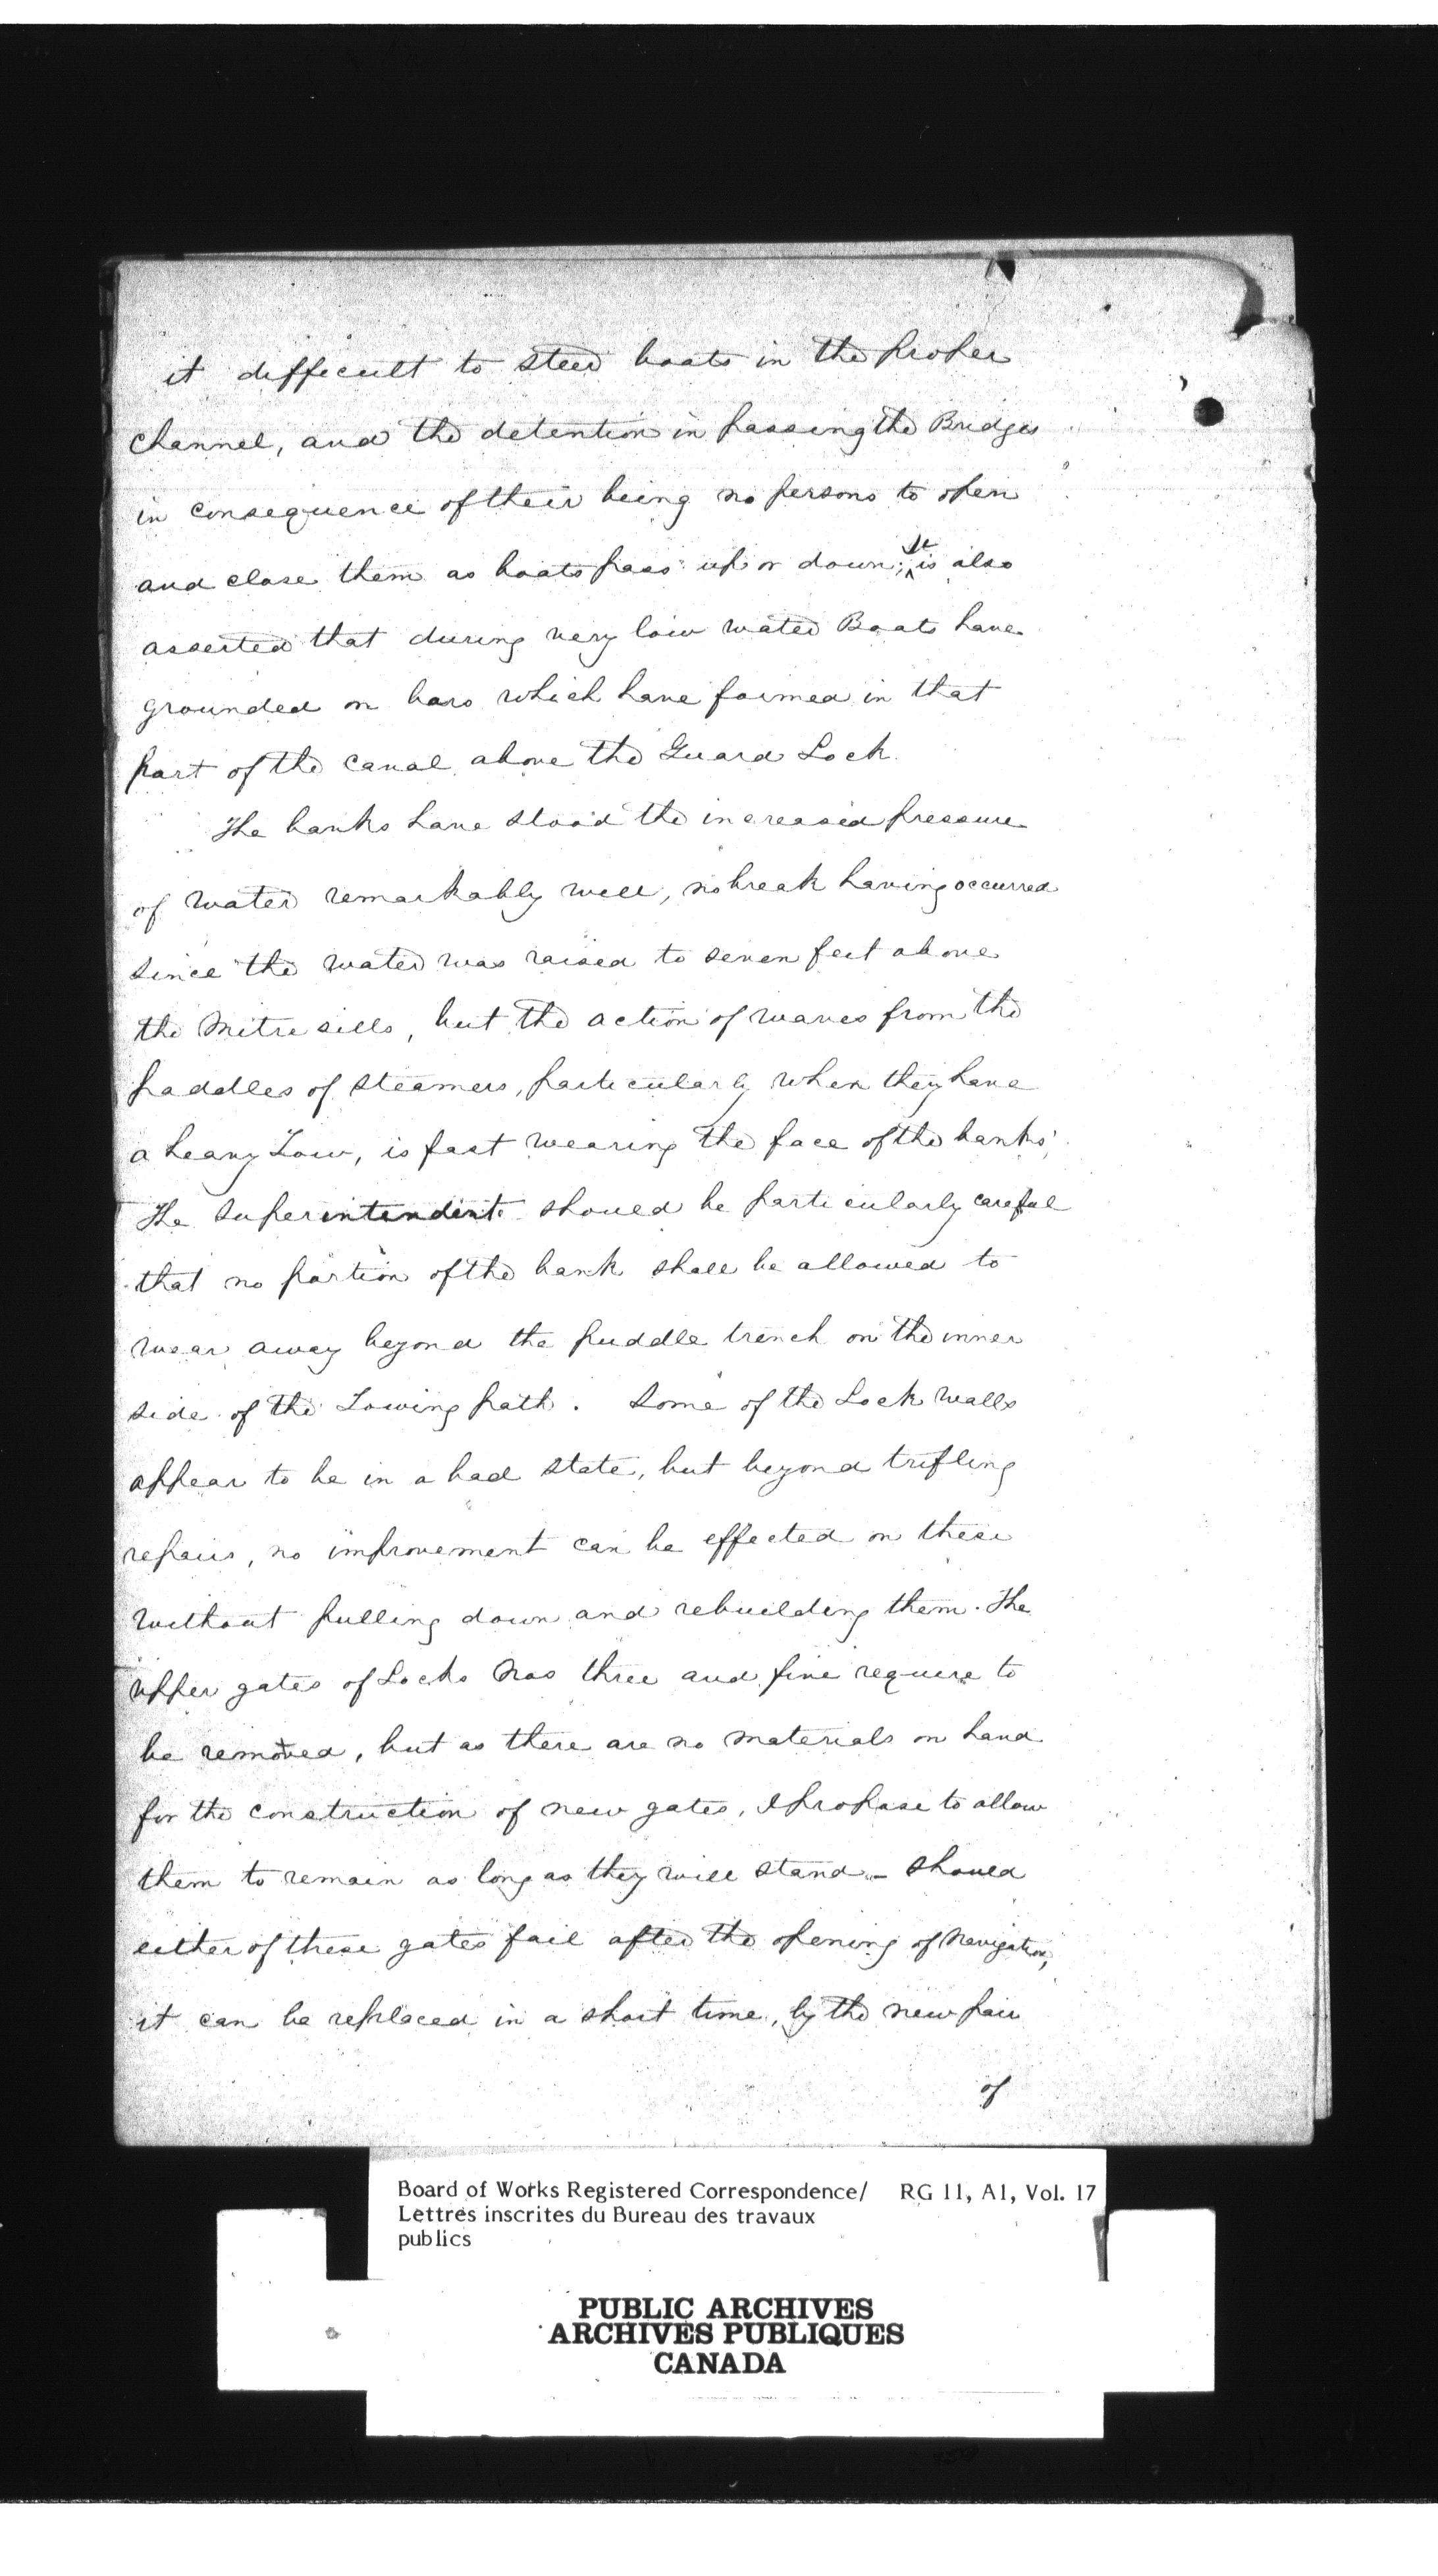 it difficult to steer boats in the proper
channel, and the detention in passing the Bridges
in consequence of their being no persons to open
and close them as boats pass up or down; It is also
asserted that during very low water Boats have
grounded on bars which have formed in that
part of the canal above the Guard Lock.
The banks have stood the increased pressure
of water remarkably well, no break having occurred
since the water was raised to seven feet above
the Mitre sills, but the action of waves from the
paddles of steamers, particularly when they have
a heavy Tow, is fast wearing the face of the banks;
The Superintendent should be particularly careful
that no portion of the bank shall be allowed to
wear away beyond the puddle trench on the inner
side of the Towing path. Some of the Lock walls
appear to be in a bad state, but beyond trifling
repairs, no improvement can be effected on these
without pulling down and rebuilding them. The
upper gates of Locks Nos three and five require to
be removed, but as there are no materials on hand
for the construction of new gates, I propose to allow
them to remain as long as they will stand - should
either of these gates fail after the opening of Navigation,
it can be replaced in a short time, by the new pair
of
Board of Works Registered Correspondence/ RG 11, A1, Vol. 17
Lettres inscrites du Bureau des travaux
publics
PUBLIC ARCHIVES
ARCHIVES PUBLIQUES
CANADA